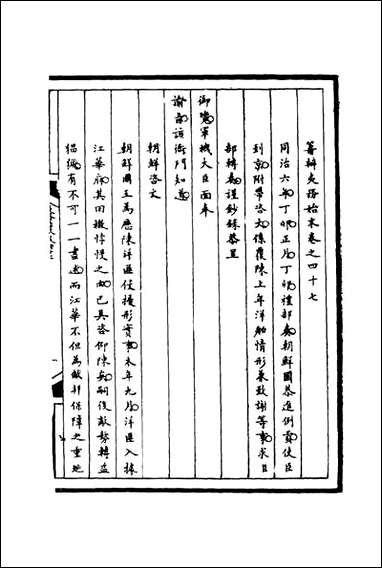 籌辦夷務始末卷之四十七
同治六年丁卯正月丁卯禮部奏朝鮮國恭進例貢使臣
到京附帶咨文係覆陳上年洋舶情形兼致謝等事求臣
部轉奏謹鈔錄恭呈
御覽軍機大臣面奉
諭旨該衙門知道
朝鮮咨文
朝鮮國王為歷陳洋匪侵擾形實事本年九月洋匪入據
江華府其回檄悖慢之由已具咨仰陳奏嗣後敵勢轉盛
猖獗有不可一一盡述而江華不但為敝邦保障之重地